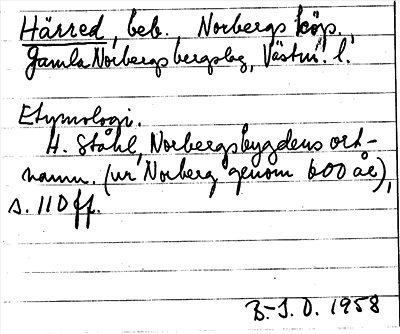 Härred, beb., Norbergs köp.,
Gamla Norbergs bergslag, Västm. l.
Etymologi.
H. Ståhl, Norbergsbygdens ort-
namn. (ur Norberg genom 600 år),
s. 110 ff.
B.-I. O. 1958